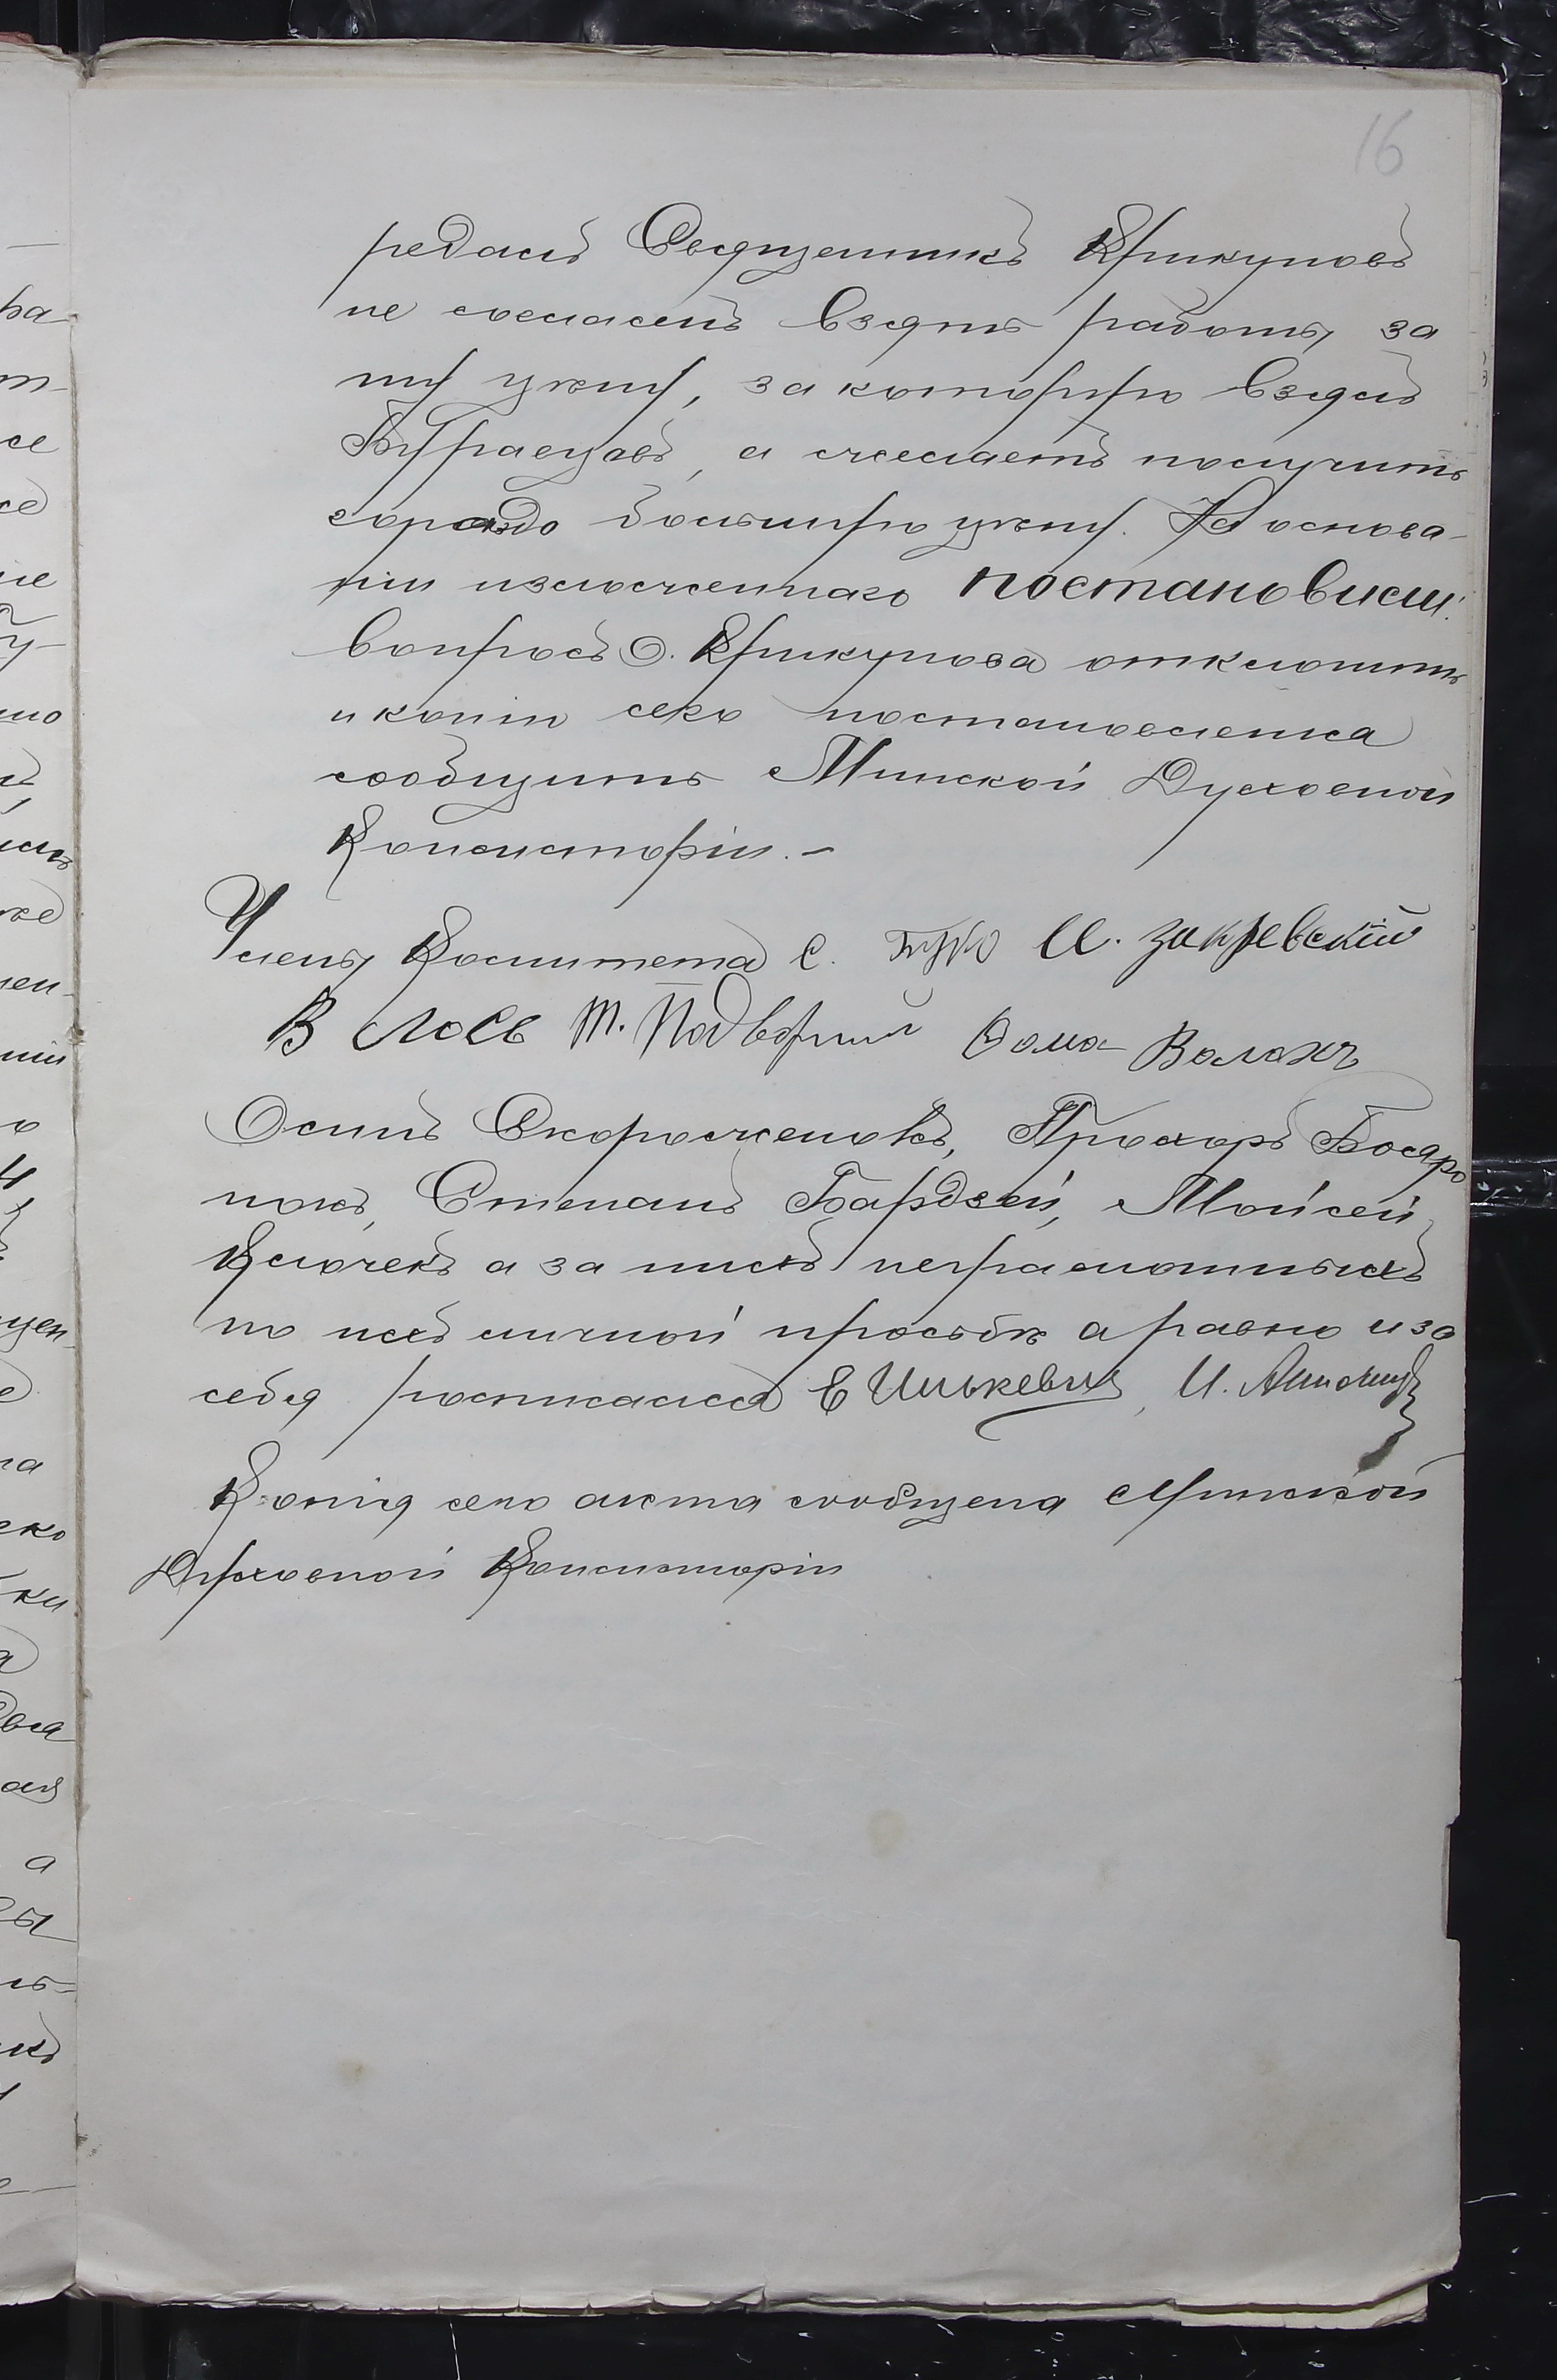 16
редалъ Священникъ Крикуновъ
не согласенъ взять работы за
ту цѣну, за которую взялъ
а желаетъ получить
гораздо большую цѣну. На основа-
ніи изложеннаго постановили:
вопросъ О. Крикунова отклонить
и копію сего постановленія
сообщить Минской Духовной
Консисторіи. –
Члены Комитета С. И. Закревскій
В Лось Т. Подворный Ѳома Валахъ
Осипъ Скороженокъ, Прохоръ Бояре
нокъ, Степанъ Бардзей, Мойсей
Ключекъ а за нихъ неграмотныхъ
по ихъ личной просьбѣ а равно и за
себя росписался Е Инькевичъ, И.
Копія сего акта сообщена Минской
Духовной Консисторіи